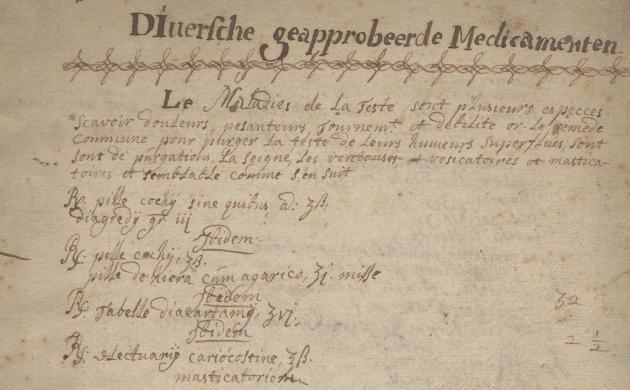 DIuersche geapprobeerde Medicamenten
Le Maladies de la teste sont plusieurs especces
scavoir douleurs, pesanteurs, tournemt. et debilite or le remede
Commune pour purger la teste de leurs humeurs superflues, sont
sont de purgations, la seigne, les ventouses et vesicatoires et mastica-
toires et semblable comme s'en suit
℞. pille cochij sine quibus a: ʒß.
diagredij gr. iij
Ibidem
℞. pille cochij, ʒß.
pille de hiera cum agarico, ʒj. misse
Ibidem
℞. Tabelle diacartamij, ʒvj.
Ibidem
℞. electuarij cariocostine, ʒß.
masticatorium
32
2 ½